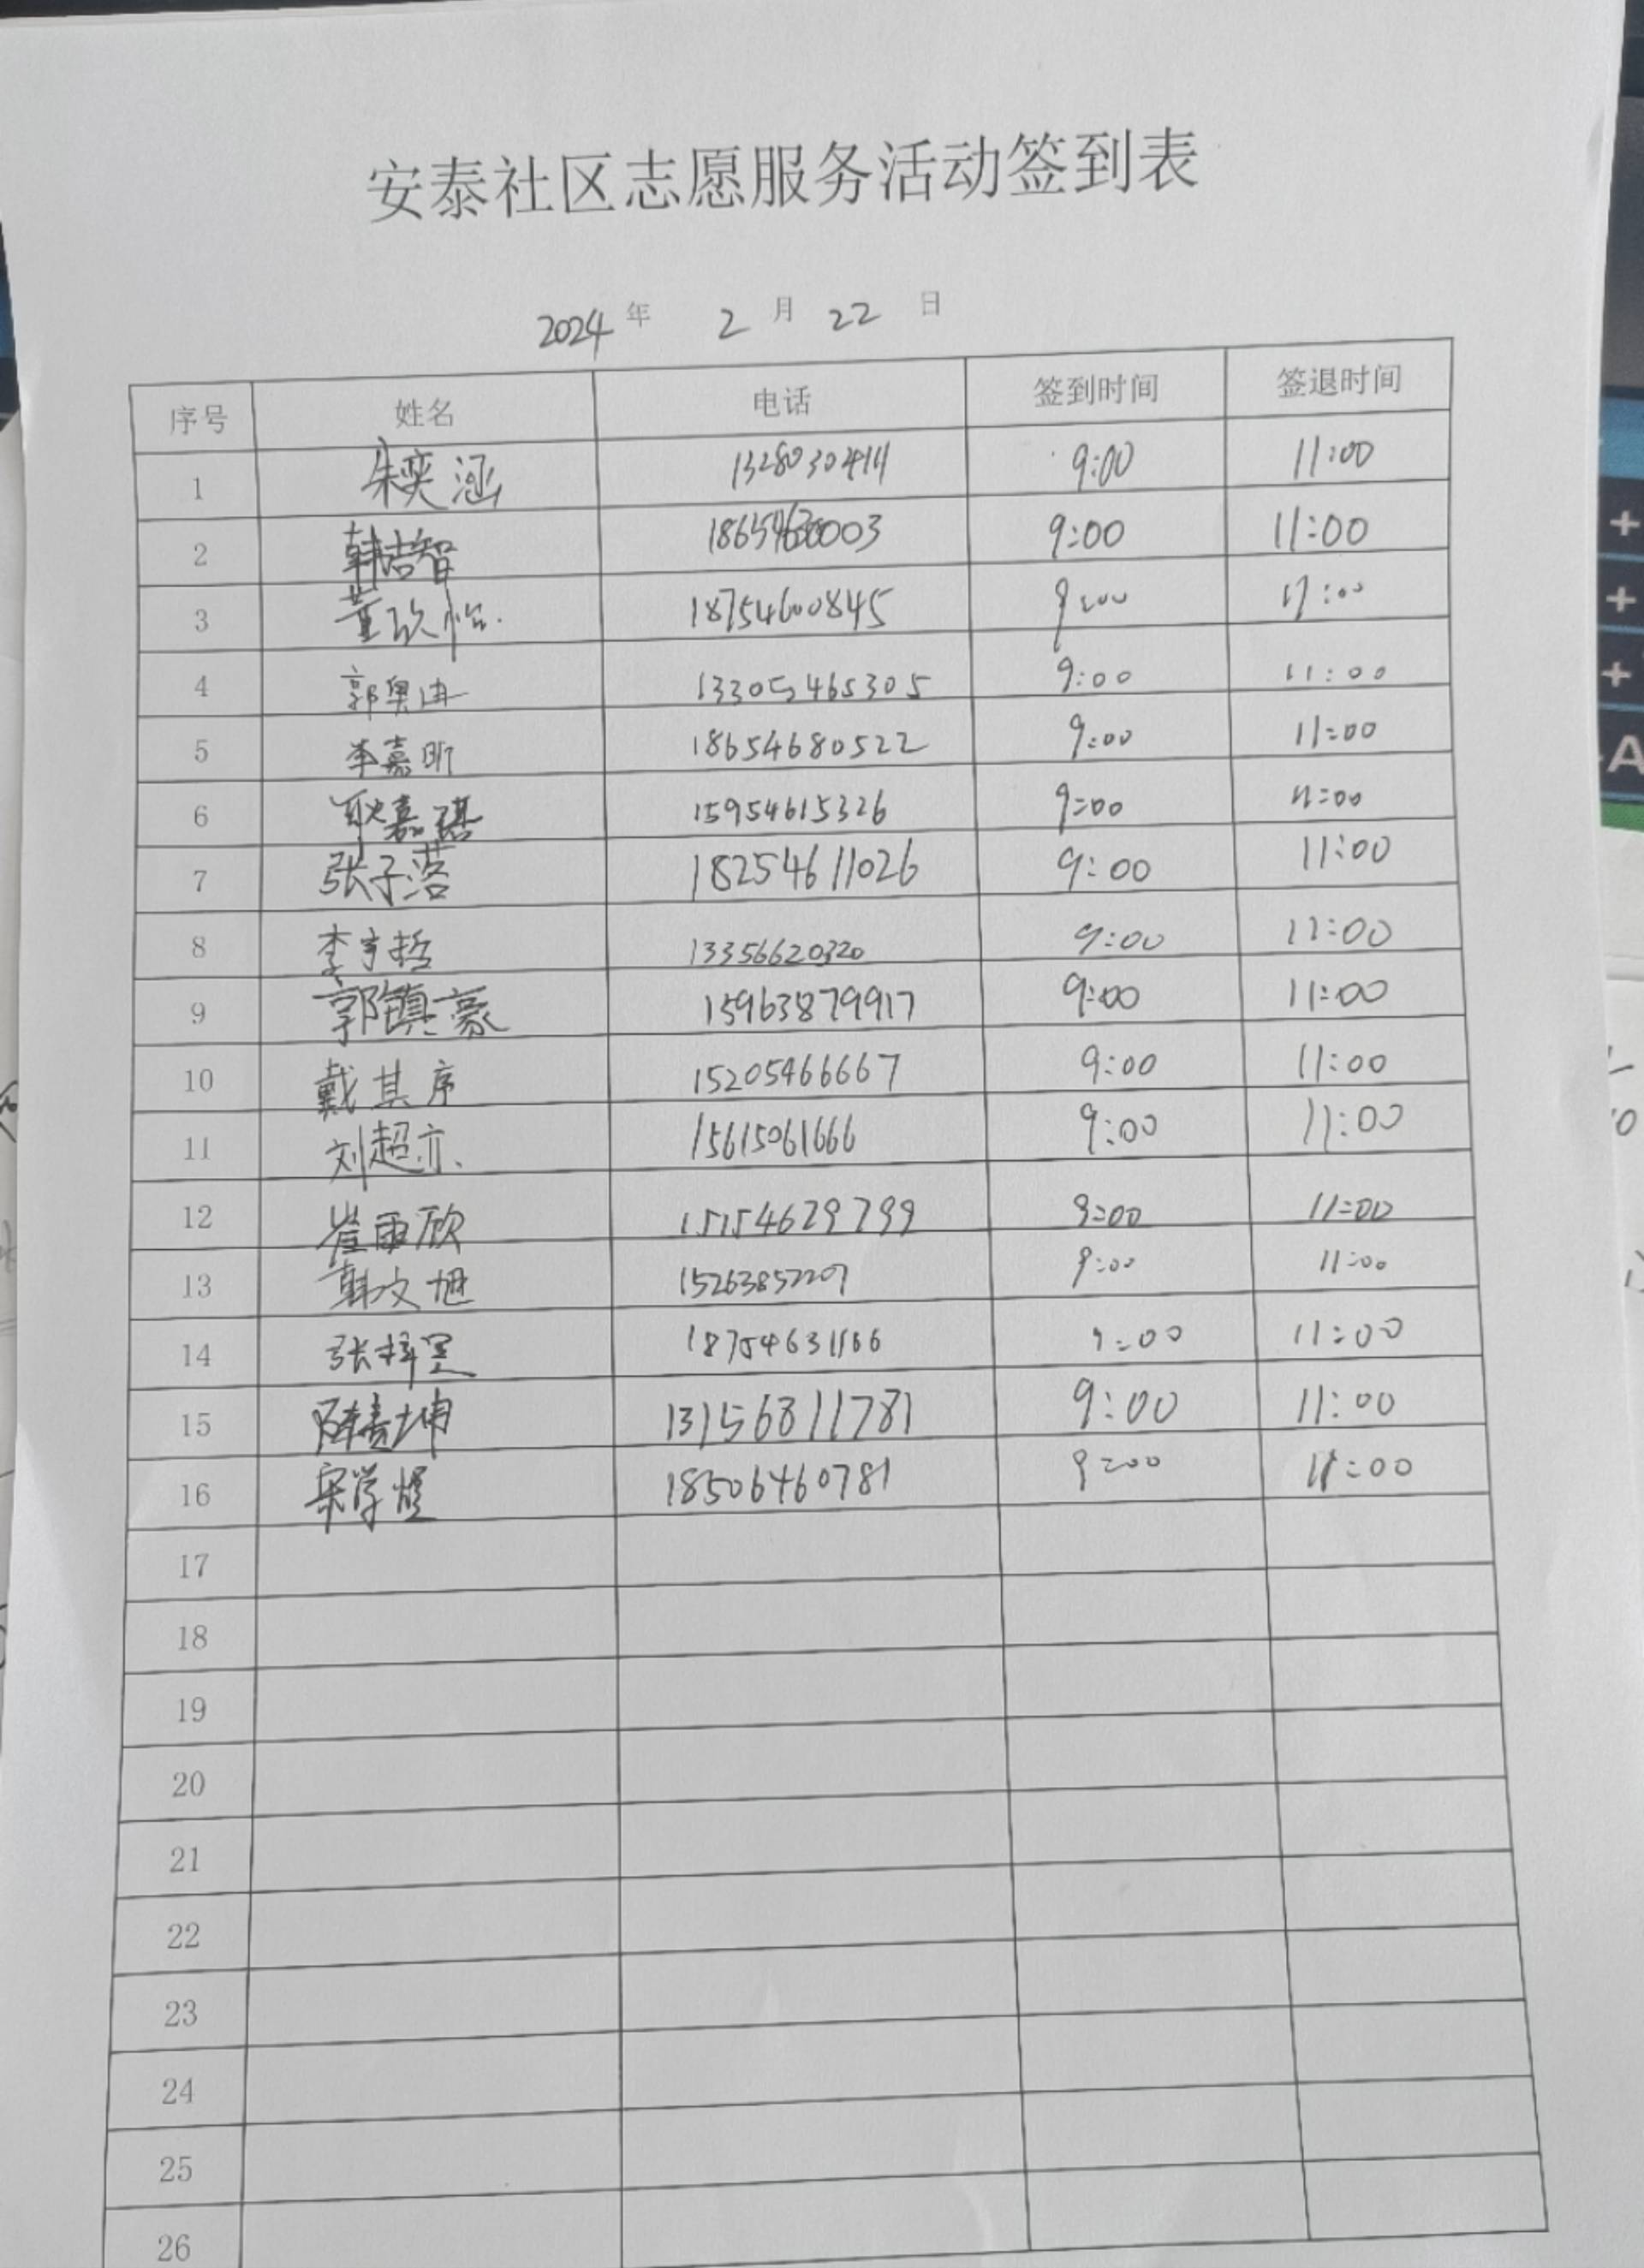 安泰社区志愿服务活动签到表
2024 年 2 月 22 日
序号 姓名 电话 签到时间 签退时间
1 朱奕涵 13280302411 9:00 11:00
2 韩浩智 9:00 11:00
3 董欣怡 18754600845 9:00 11:00
4 郭奥迪 13305465305 9:00 11:00
5 李嘉昕 18654680522 9:00 11:00
6 耿嘉 15954615326 9:00 11:00
7 张子落 18254611026 9:00 11:00
8 李宇哲 13356620320 9:00 11:00
9 郭镇豪 15963879917 9:00 11:00
10 戴其序 15205466667 9:00 11:00
11 刘超亦 15615061666 9:00 11:00
12 崔雨欣 15154629799 9:00 11:00
13 韩文旭 15263852207 9:00 11:00
14 张梓 18754631166 9:00 11:00
15 坤 13156811781 9:00 11:00
16 宋学煜 18506460781 9:00 11:00
17
18
19
20
21
22
23
24
25
26